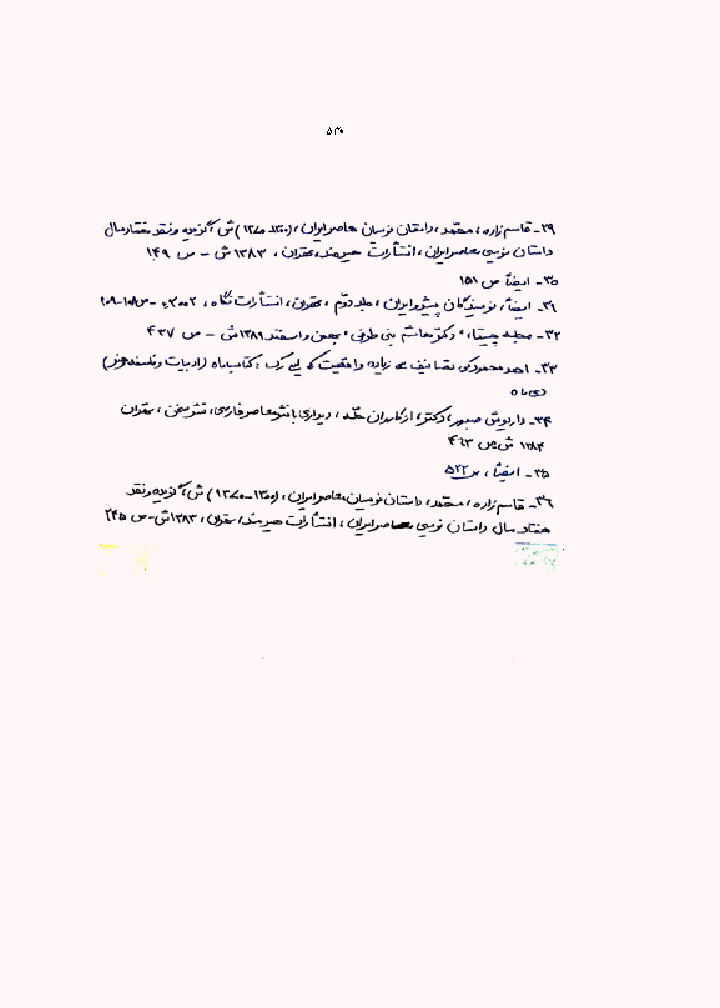 ۵۴۰
۲۹- قاسم زاده، محمّد، داستان نویسان معاصر ایران، (۱۳۰۰-۱۳۷۰) ش، گزیده و نقد هفتاد سال
داستان نویسی معاصر ایران، انتشارات هیرمند، تهران، ۱۳۸۳ ش - ص ۱۴۹
۳۰- ایضاً ص ۱۵۱
۳۱- ایضاً، نویسندگان پیشرو ایران، جلد دوّم، تهران، انتشارات نگاه، ۲۰۰۳ء - ص ۱۰۸-۱۰۹
۳۲- مجله چیستا، دکتر هاشم بنی طرفی، بهمن و اسفند ۱۳۸۹ ش - ص ۴۳۷
۳۳- احمد محمود کی تصانیف سے زیادہ واقفیت کے لیے رک: کتاب ماه (ادبیات و فلسفه هنر)
دی ماه
۳۴- داریوش صبور، دکتر، از کاروان حلّه، دیداری با نثر معاصر فارسی، نشر سخن، تهران
۱۳۸۴ ش ص ۴۹۳
۳۵- ایضاً، ص ۵۲۲
۳۶- قاسم زاده، محمّد، داستان نویسان معاصر ایران، (۱۳۰۰-۱۳۷۰) ش، گزیده و نقد
هفتاد سال داستان نویسی معاصر ایران، انتشارات هیرمند، تهران، ۱۳۸۳ ش - ص ۲۴۵